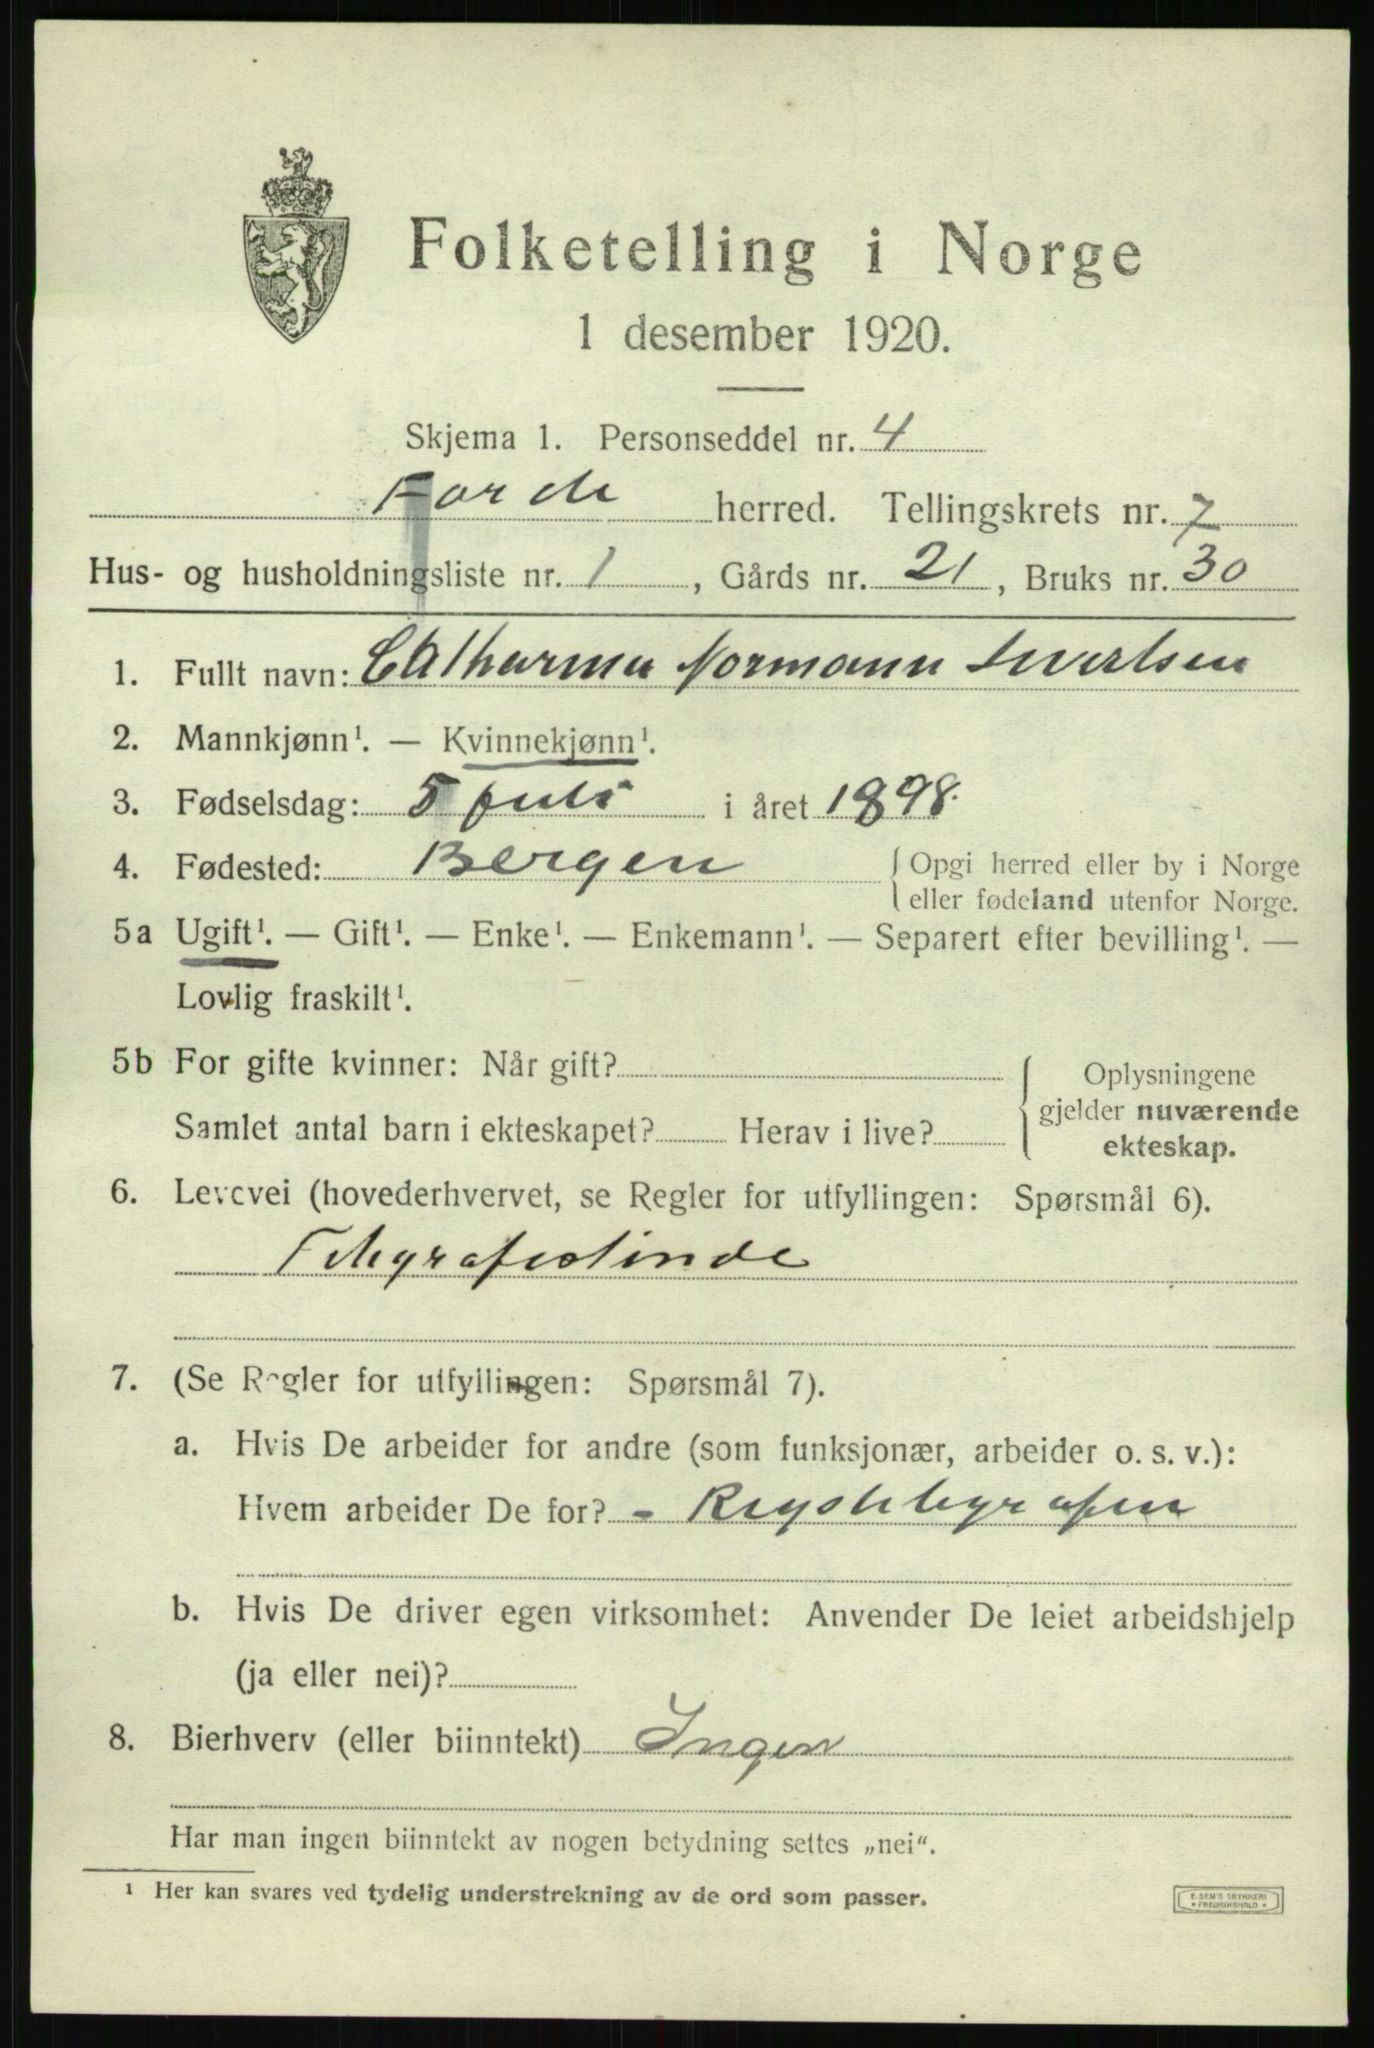 Folketelling i Norge
1 desember 1920.
Skjema 1. Personseddel nr. 4
Førde herred. Tellingskrets nr. 7
Hus- og husholdningsliste nr. 1, Gårds nr. 21, Bruks nr. 30
1. Fullt navn: Catharina Normann Sivertsen
2. Mannkjønn¹. — Kvinnekjønn¹.
3. Fødselsdag: 5 juli i året 1898.
4. Fødested: Bergen { Opgi herred eller by i Norge
eller fødeland utenfor Norge.
5a Ugift¹. — Gift¹. — Enke¹. — Enkemann¹. — Separert efter bevilling¹. —
Lovlig fraskilt¹.
5b For gifte kvinner: Når gift? { Oplysningene
gjelder nuværende
ekteskap.
Samlet antal barn i ekteskapet? Herav i live?
6. Levevei (hovederhvervet, se Regler for utfyllingen: Spørsmål 6).
Telegrafistinde
7. (Se Regler for utfyllingen: Spørsmål 7).
a. Hvis De arbeider for andre (som funksjonær, arbeider o. s. v.):
Hvem arbeider De for? - Rigstelegrafen
b. Hvis De driver egen virksomhet: Anvender De leiet arbeidshjelp
(ja eller nei)?
8. Bierhverv (eller biinntekt) Ingen
Har man ingen biinntekt av nogen betydning settes „nei“.
¹ Her kan svares ved tydelig understrekning av de ord som passer.
E. SEM'S TRYKKERI
* FREDRIKSHALD *